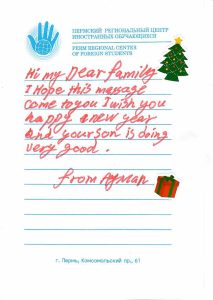 ПЕРМСКИЙ РЕГИОНАЛЬНЫЙ ЦЕНТР
ИНОСТРАННЫХ ОБУЧАЮЩИХСЯ
PERM REGIONAL CENTRE
OF FOREIGN STUDENTS
Hi my Dear family
I Hope this massage
come to you I wish you
happy a new year
and your son is doing
very good.
from Ayman
г. Пермь, Комсомольский пр., 61